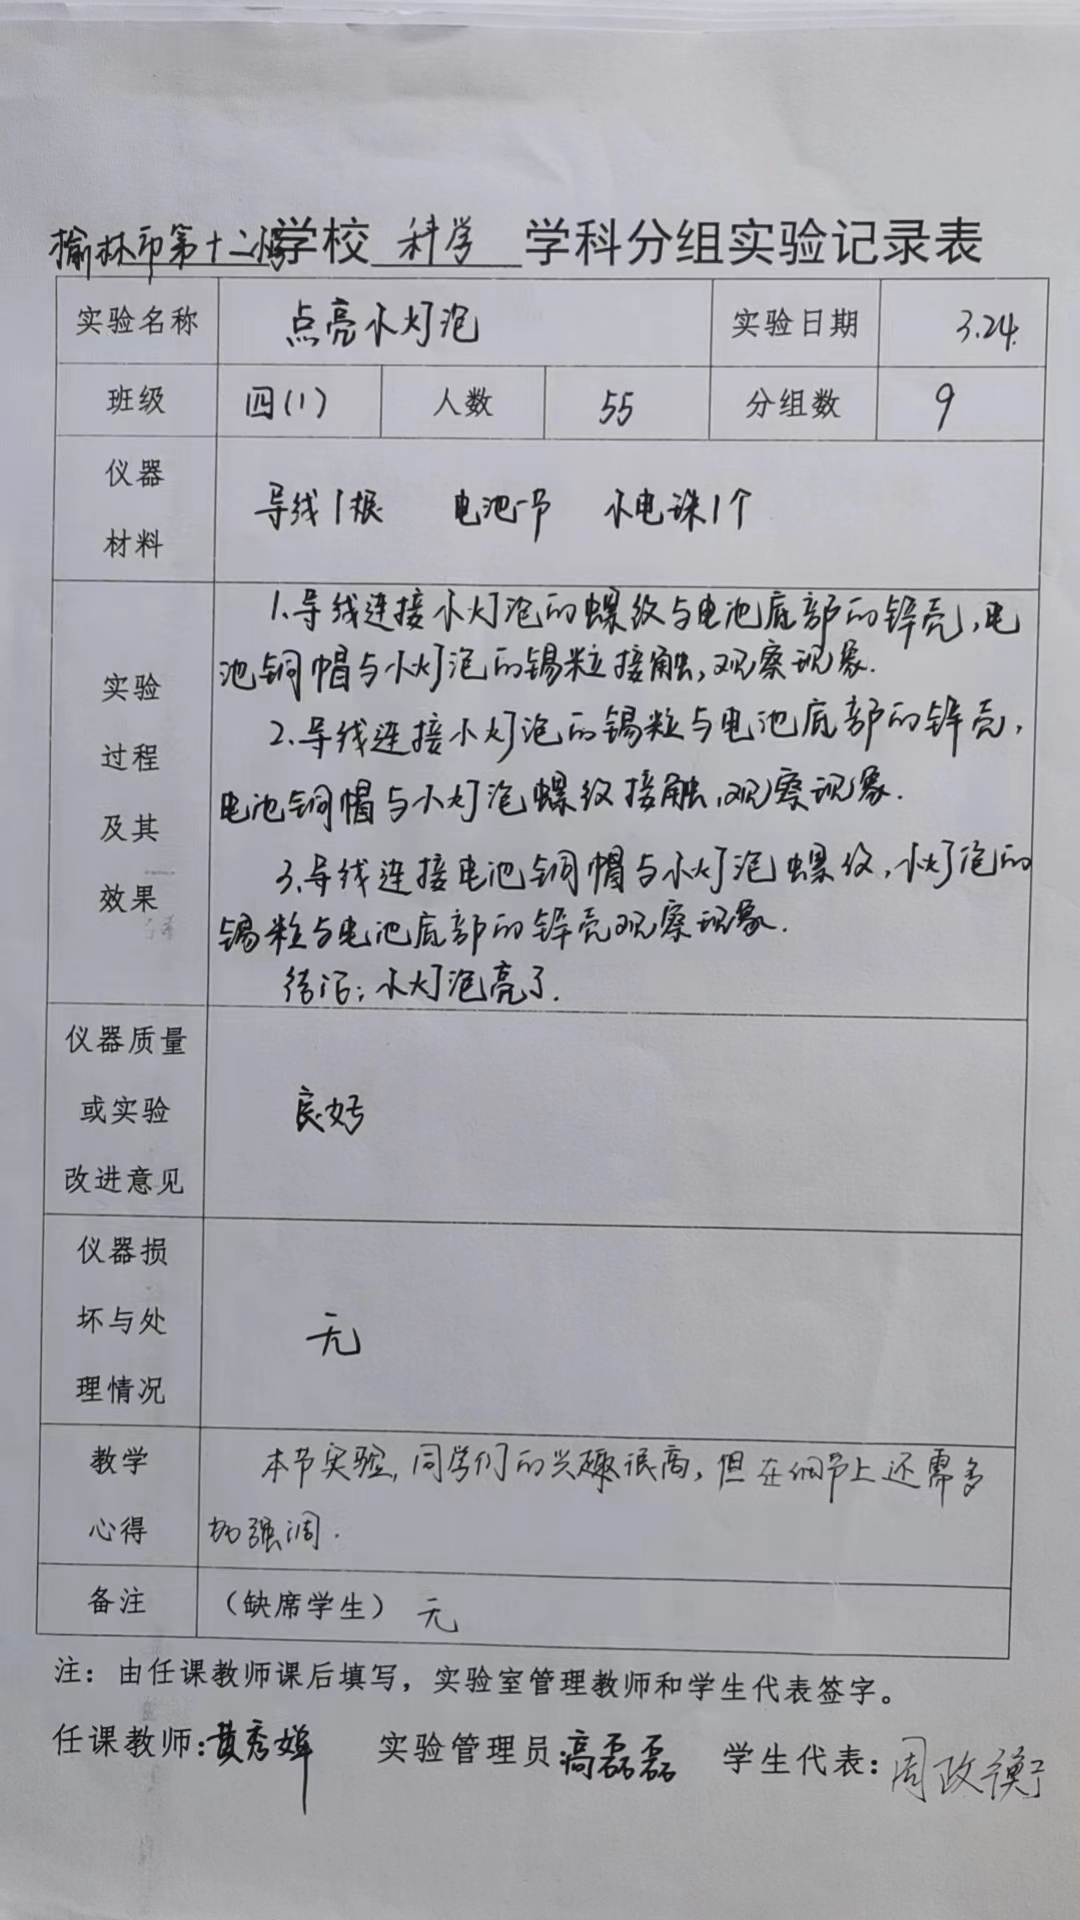 榆林市第十二小学校 科学 学科分组实验记录表
实验名称 点亮小灯泡 实验日期 3.24.
班级 四(1) 人数 55 分组数 9
仪器
材料
导线1根 电池一节 小电珠1个
实验
过程
及其
效果
1.导线连接小灯泡的螺纹与电池底部的锌壳,电
池铜帽与小灯泡的锡粒接触,观察现象.
2.导线连接小灯泡的锡粒与电池底部的锌壳,
电池铜帽与小灯泡螺纹接触,观察现象.
3.导线连接电池铜帽与小灯泡螺纹,小灯泡的
锡粒与电池底部的锌壳观察现象.
结论:小灯泡亮了.
仪器质量
或实验
改进意见
良好
仪器损
坏与处
理情况
无
教学
心得
本节实验,同学们的兴趣很高,但在细节上还需多
加强调.
备注 (缺席学生) 无
注：由任课教师课后填写，实验室管理教师和学生代表签字。
任课教师:黄秀婵 实验管理员:高磊磊 学生代表:周政衡